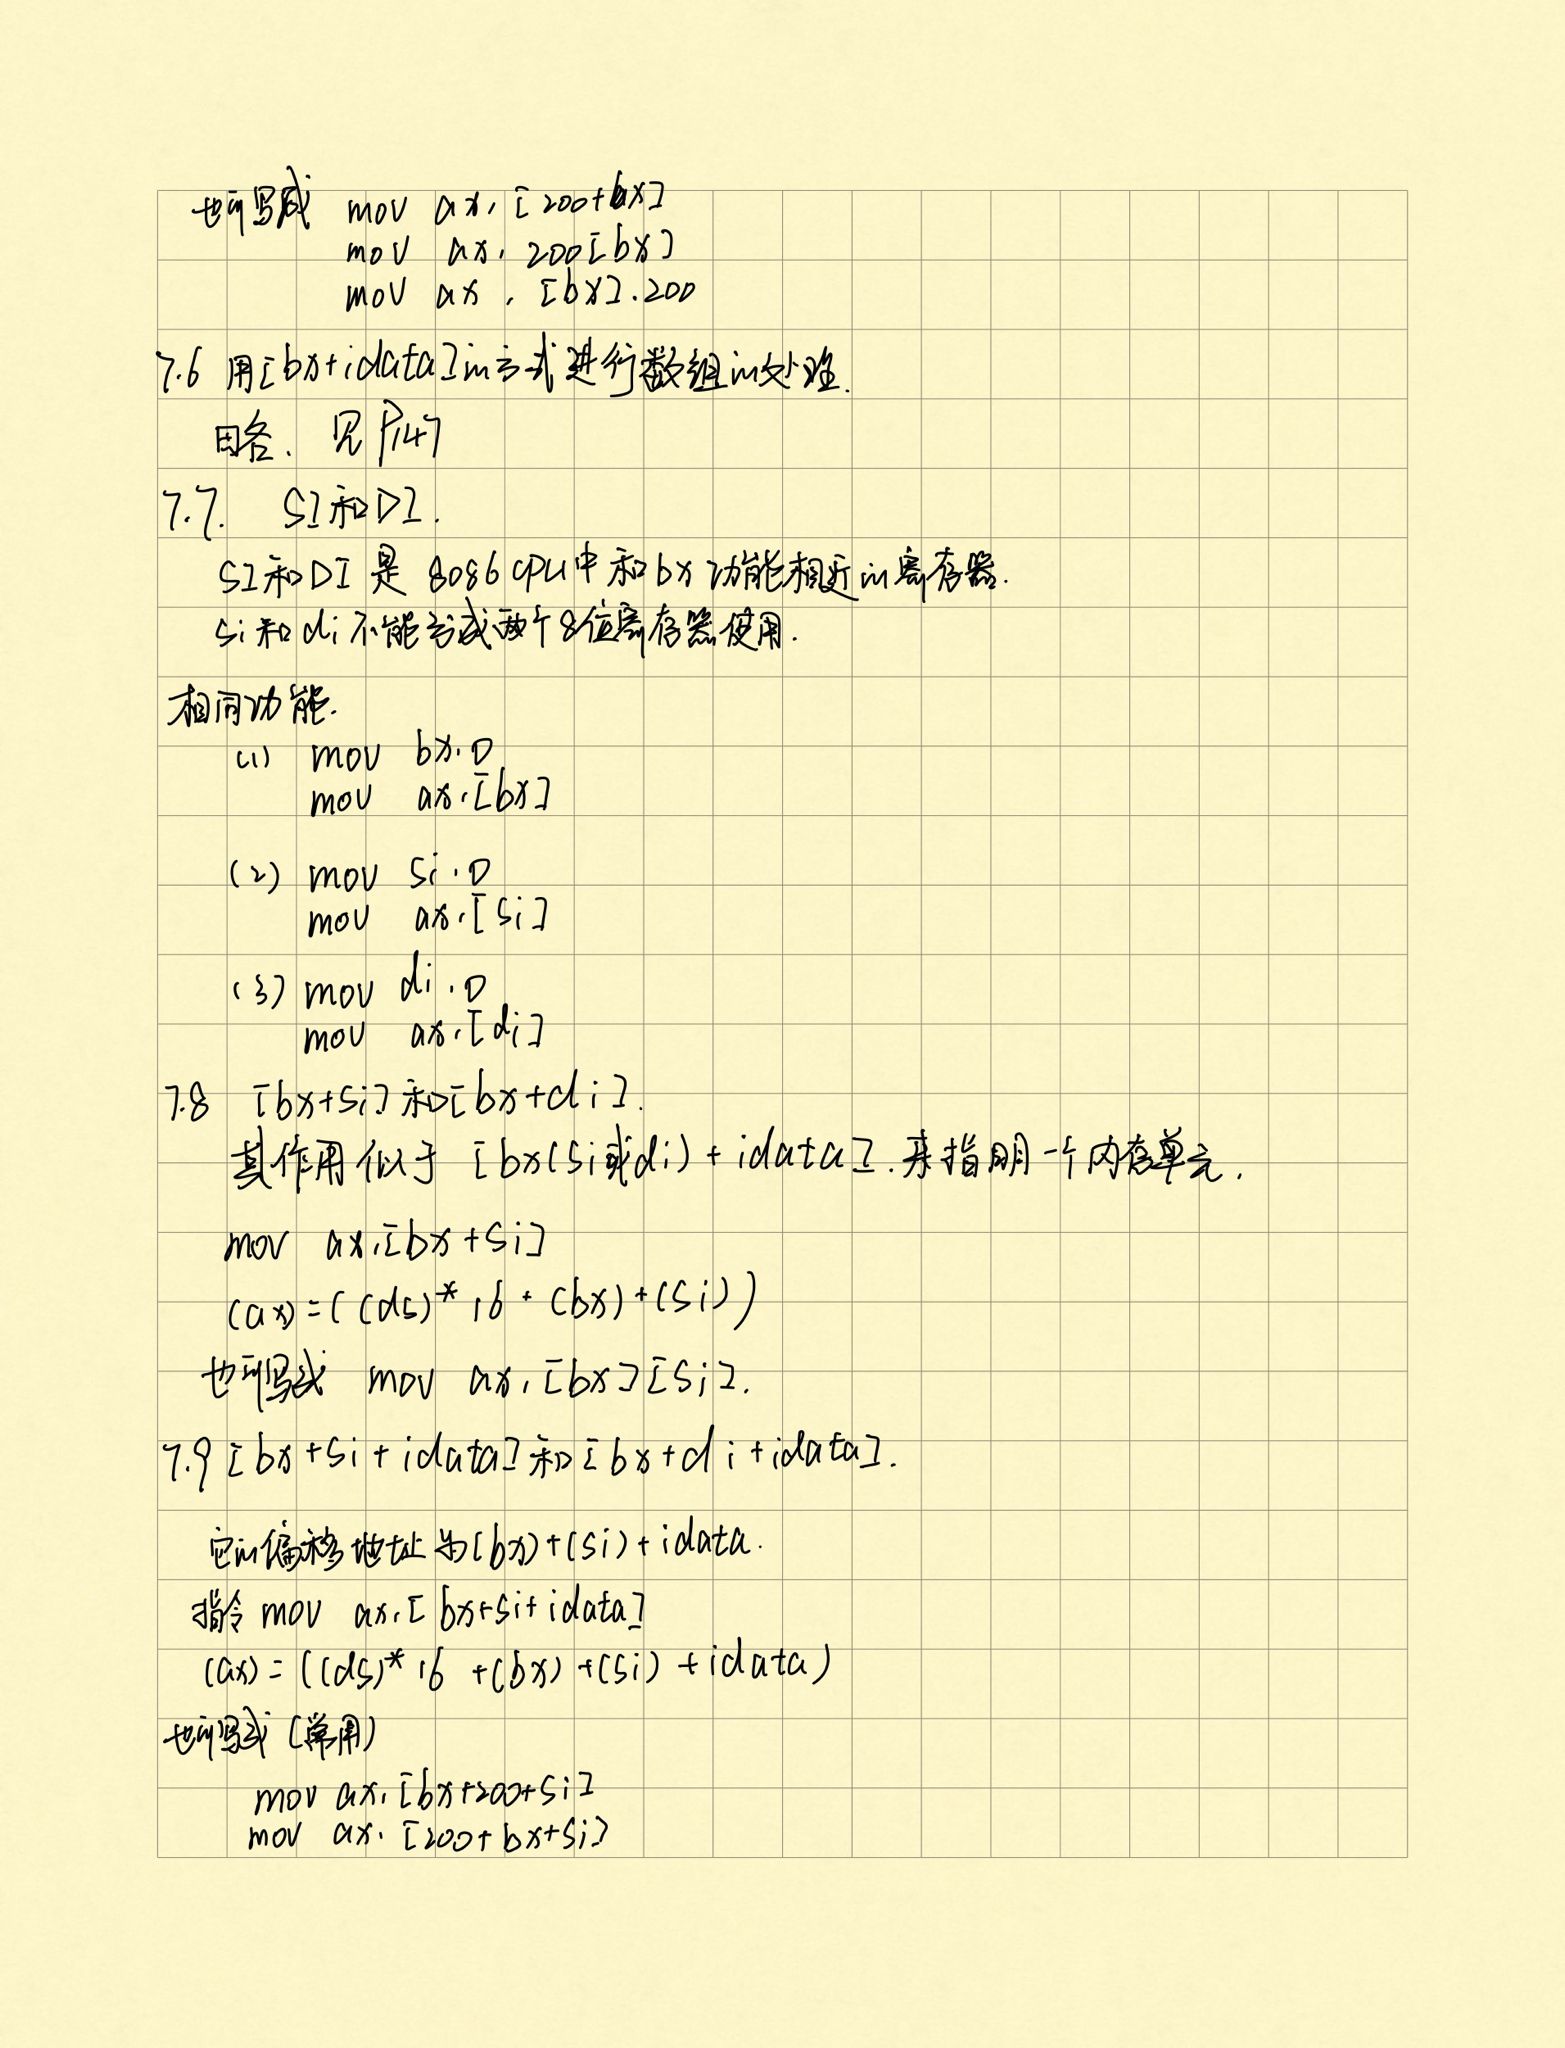 也可写成 mov ax, [200+bx]
mov ax, 200[bx]
mov ax, [bx].200
7.6 用[bx+idata]的方式进行数组的处理.
略. 见P147
7.7. SI和DI.
SI和DI是8086CPU中和bx功能相近的寄存器.
si和di不能分成两个8位寄存器使用.
相同功能.
(1) mov bx,0
mov ax,[bx]
(2) mov si,0
mov ax,[si]
(3) mov di,0
mov ax,[di]
7.8 [bx+si]和[bx+di].
其作用似于 [bx(si或di)+idata].来指明一个内存单元.
mov ax,[bx+si]
(ax)=((ds)*16+(bx)+(si))
也可写成 mov ax,[bx][si].
7.9 [bx+si+idata]和[bx+di+idata].
它的偏移地址为(bx)+(si)+idata.
指令 mov ax,[bx+si+idata]
(ax)=((ds)*16+(bx)+(si)+idata)
也可写成(常用)
mov ax,[bx+200+si]
mov ax,[200+bx+si]